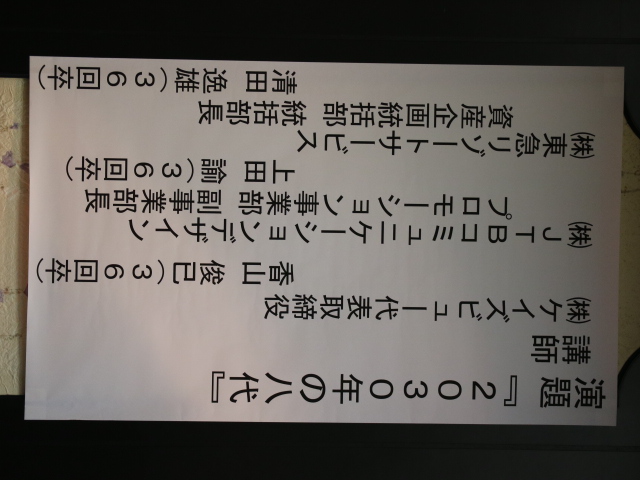 演題『2030年の八代』
講師
㈱ケイズビュー代表取締役
香山 俊己(36回卒)
㈱JTBコミュニケーションデザイン
プロモーション事業部 副事業部長
上田 諭(36回卒)
㈱東急リゾートサービス
資産企画統括部 統括部長
清田 逸雄(36回卒)